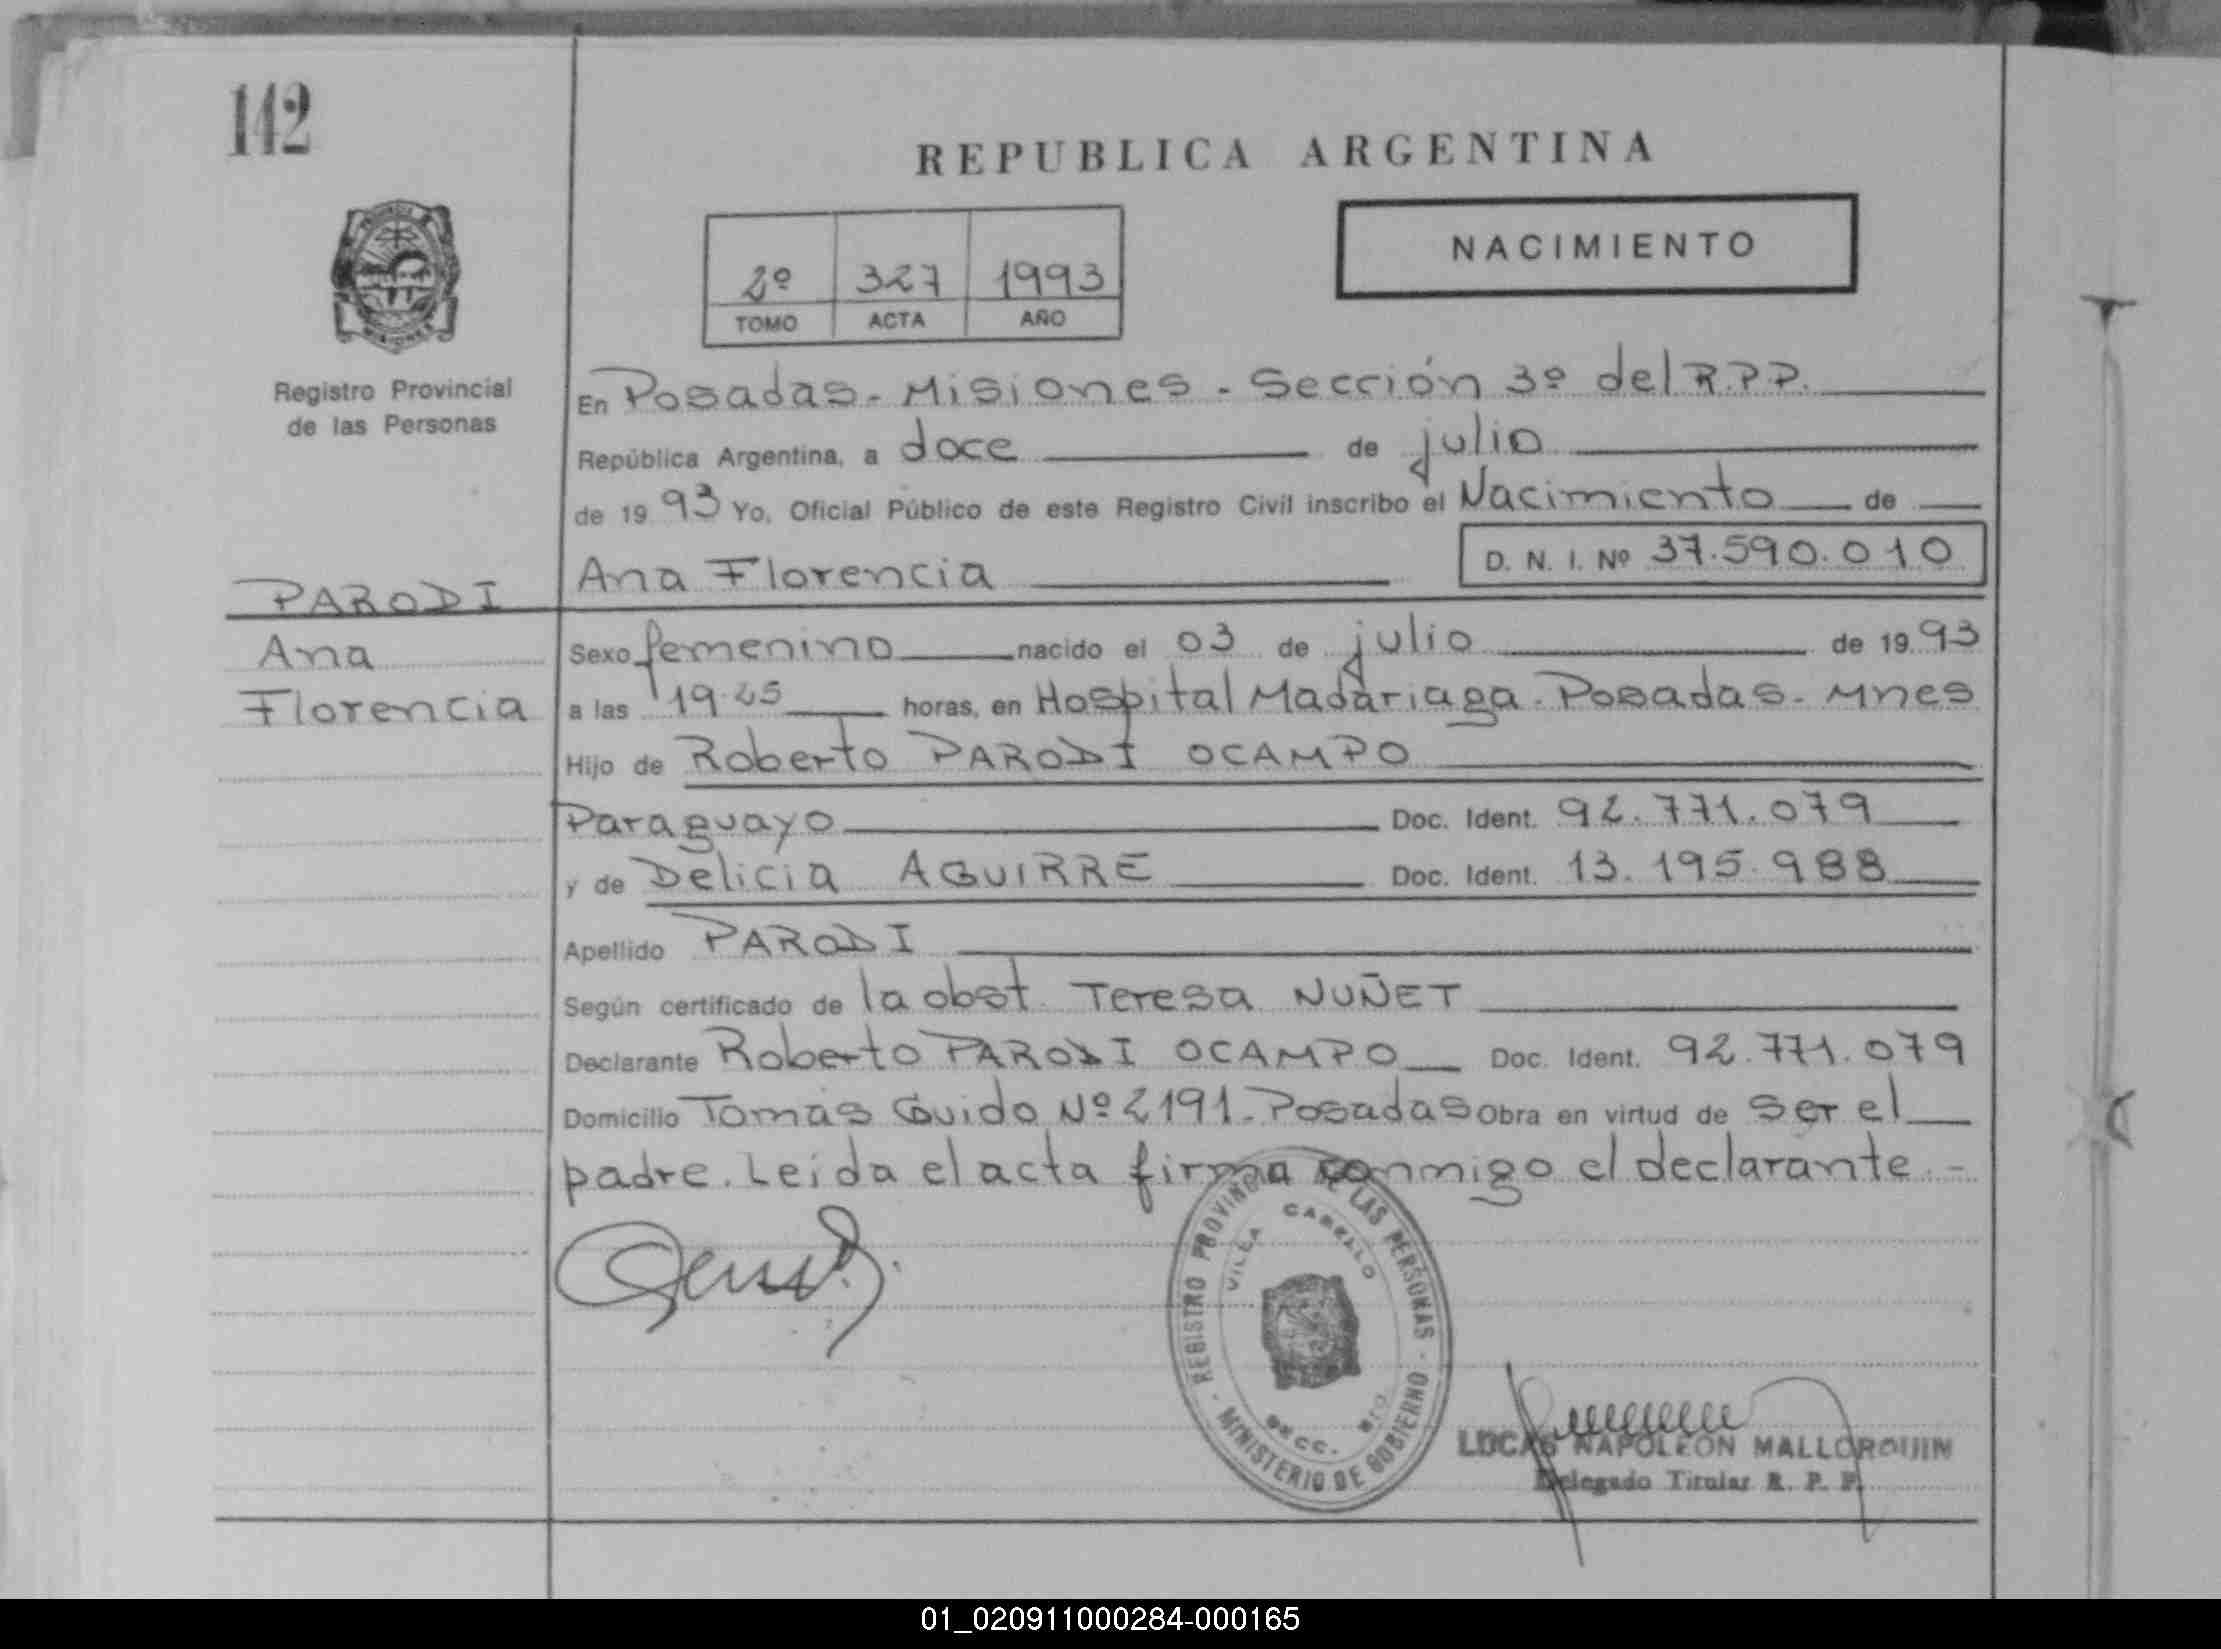 142
REPUBLICA ARGENTINA
NACIMIENTO
2º 327 1993
TOMO ACTA AÑO
Registro Provincial
de las Personas
En Posadas - Misiones - Sección 3º del R.P.P.
República Argentina, a doce de julio
de 19 93 Yo, Oficial Público de este Registro Civil inscribo el Nacimiento de
Ana Florencia D. N. I. Nº 37.590.010
PARODI
Ana
Florencia
Sexo femenino nacido el 03 de julio de 19 93
a las 19.25 horas, en Hospital Madariaga - Posadas - Mnes
Hijo de Roberto PARODI OCAMPO
Paraguayo Doc. Ident. 92.771.079
y de Delicia AGUIRRE Doc. Ident. 13.195.988
Apellido PARODI
Según certificado de la obst. Teresa NUÑET
Declarante Roberto PARODI OCAMPO Doc. Ident. 92.771.079
Domicilio Tomás Guido Nº 2191 - Posadas Obra en virtud de ser el
padre. Leida el acta firma conmigo el declarante. -
REGISTRO PROVINCIAL DE LAS PERSONAS - MINISTERIO DE GOBIERNO -
VILLA CABELLO
SECC.
LUCAS NAPOLEON MALLORQUIN
Delegado Titular R. P. P.
01_020911000284-000165